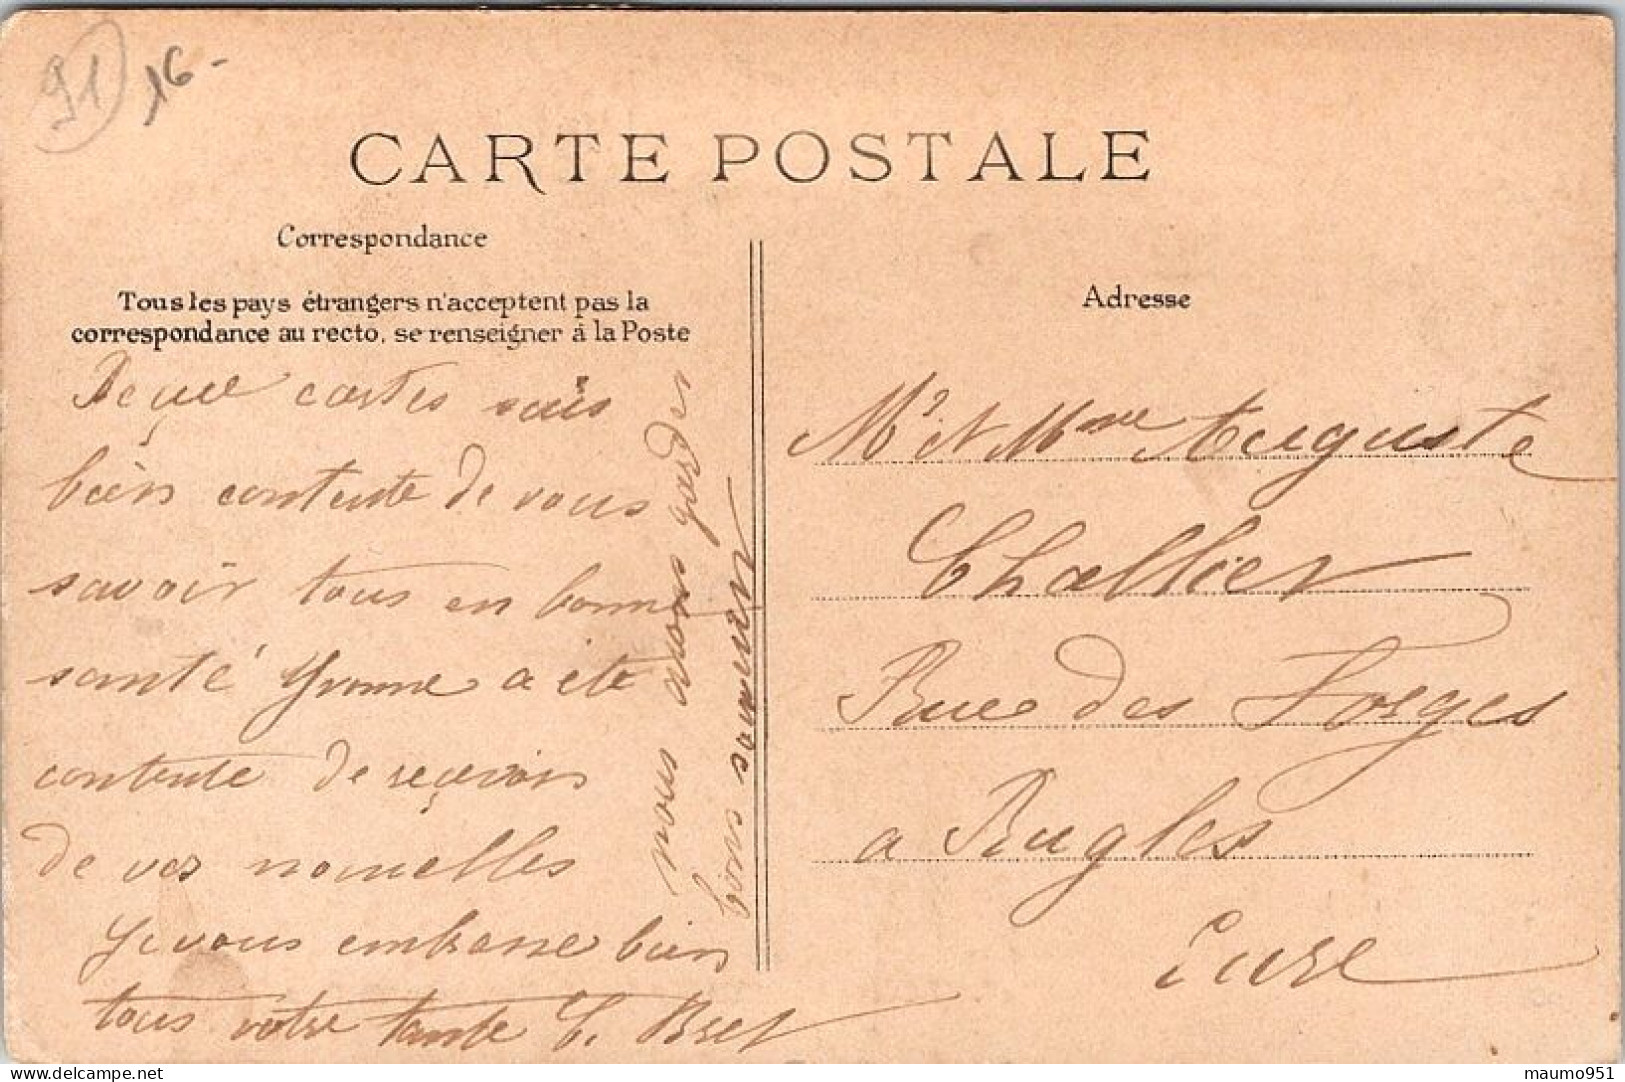 91 16-
CARTE POSTALE
Correspondance
Tous les pays étrangers n'acceptent pas la
correspondance au recto, se renseigner à la Poste
Reçue cartes suis
bien contente de vous
savoir tous en bonne
santé Yvonne a été
contente de reçevoir
de vos nouvelles
Je vous embrasse bien
tous votre tante C. Bret
nous avons
bons souvenir
Adresse
Mr et Mme Auguste
Challier
Rue des Forges
a Rugles
Eure
delcampe.net
maumo951